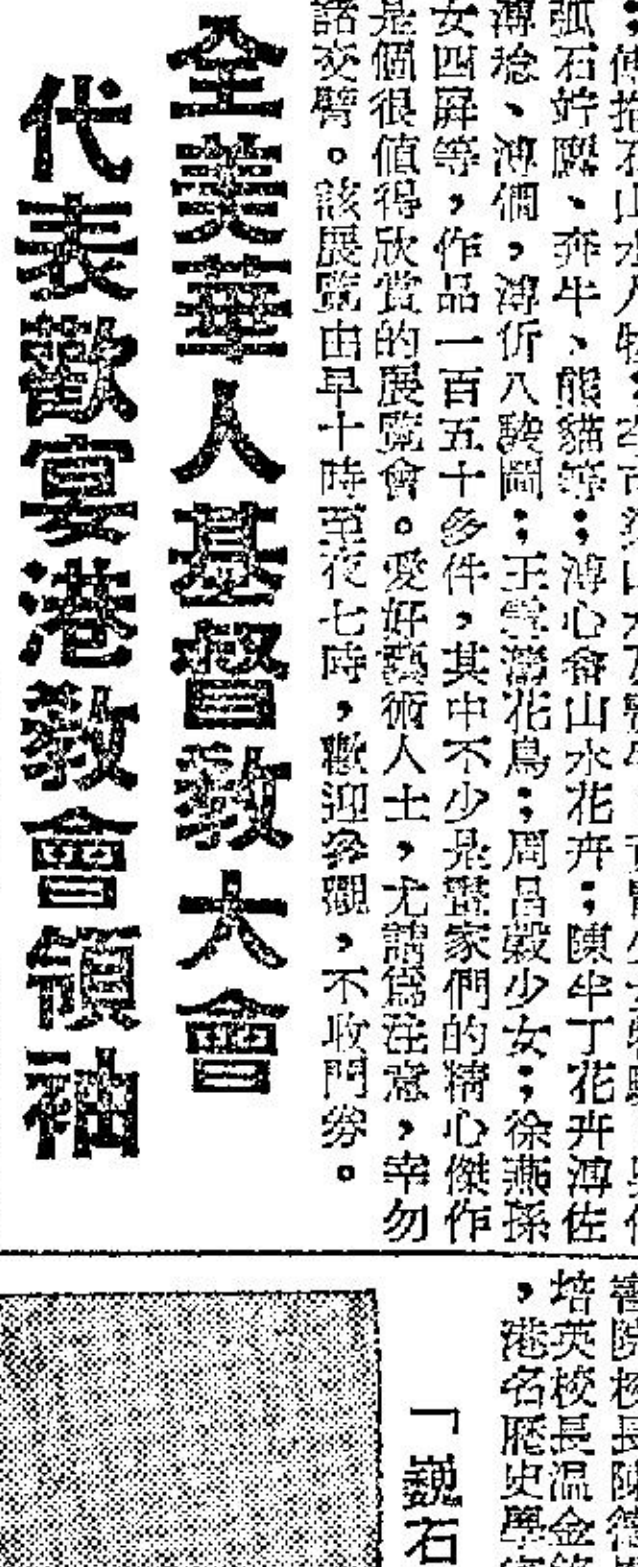 ；傅抱石山水人物；李可染山水
弧石竚鷹、奔牛、熊貓等；溥心畬山水花卉；陳半丁花卉溥佐
溥稔、溥僩，溥伒八駿圖；王雪濤花鳥；周昌穀少女；徐燕孫
女四屏等，作品一百五十多件，其中不少是家們的精心傑作
是個很值得欣賞的展覽會。愛好藝術人士，尤請爲注意，幸勿
諸交臂。該展覽由早十時至夜七時，歡迎參觀，不收門券。
全美華人基督教大會
代表歡宴港教會領袖
院校長陳
培英校長温金
，港名歷史學
「巍石